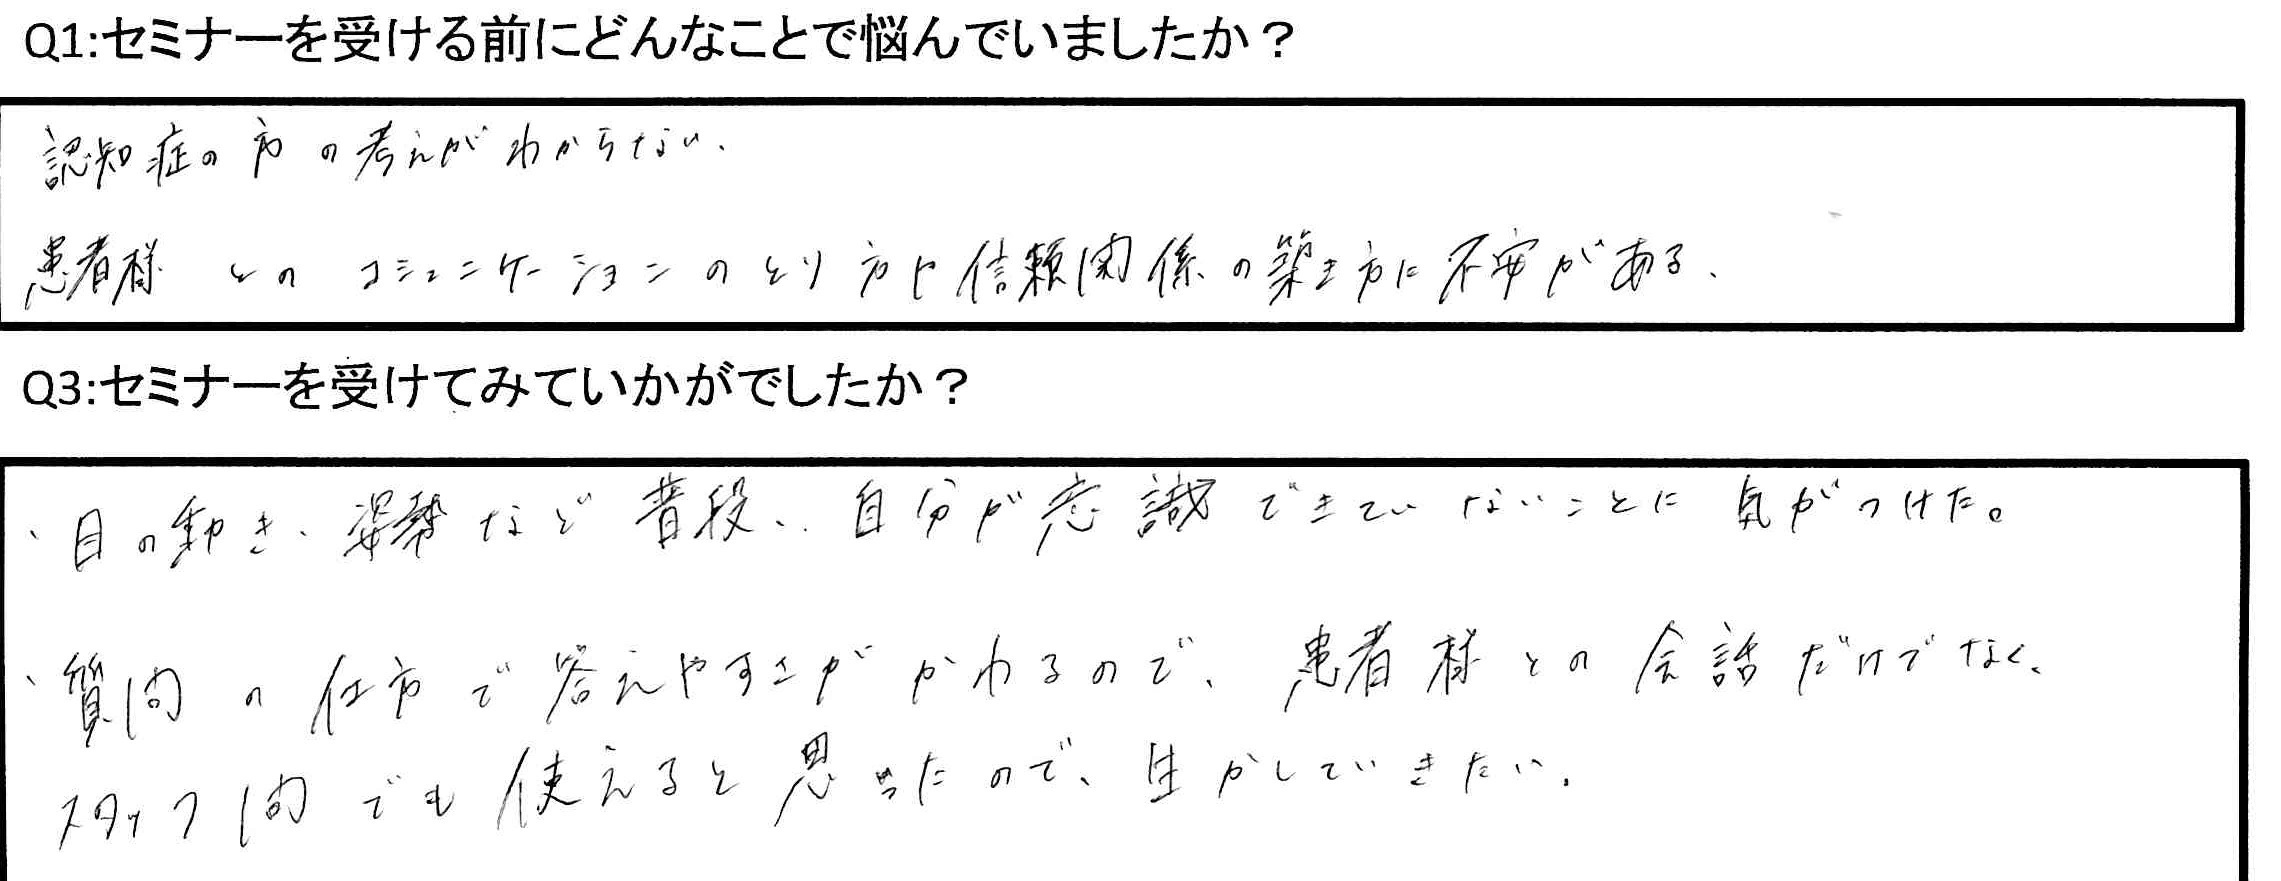 Q1:セミナーを受ける前にどんなことで悩んでいましたか？
認知症の方の考えがわからない、
患者様とのコミュニケーションのとり方や信頼関係の築き方に不安がある、
Q3:セミナーを受けてみていかがでしたか？
・目の動き、姿勢など普段、自分が意識できていないことに気がつけた。
・質問の仕方で答えやすさがかわるので、患者様との会話だけでなく、
スタッフ間でも使えると思ったので、生かしていきたい。